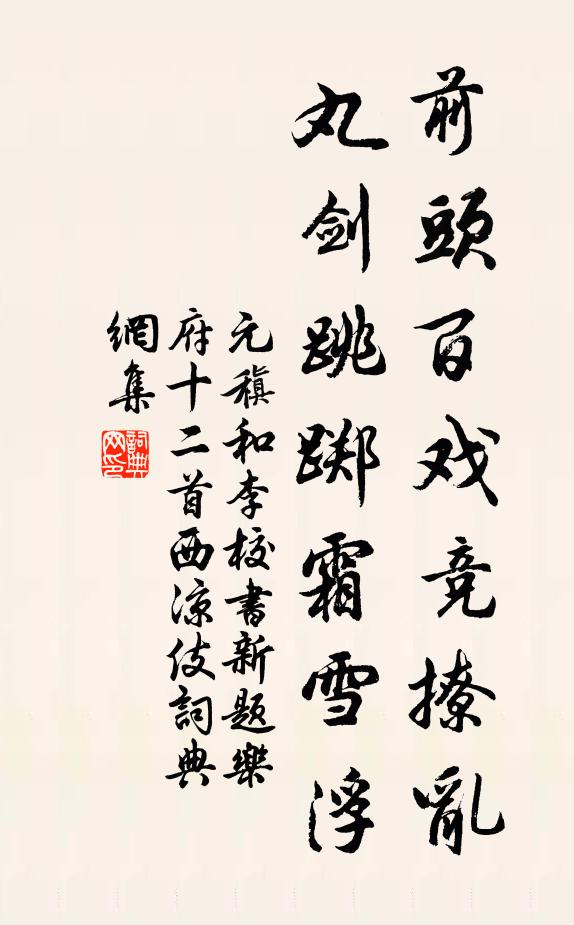 前頭百戏竞撩亂
丸剑跳踯霜雪浮
元稹和李校書新题樂
府十二首西凉伎詞典
網集
詞典
网印